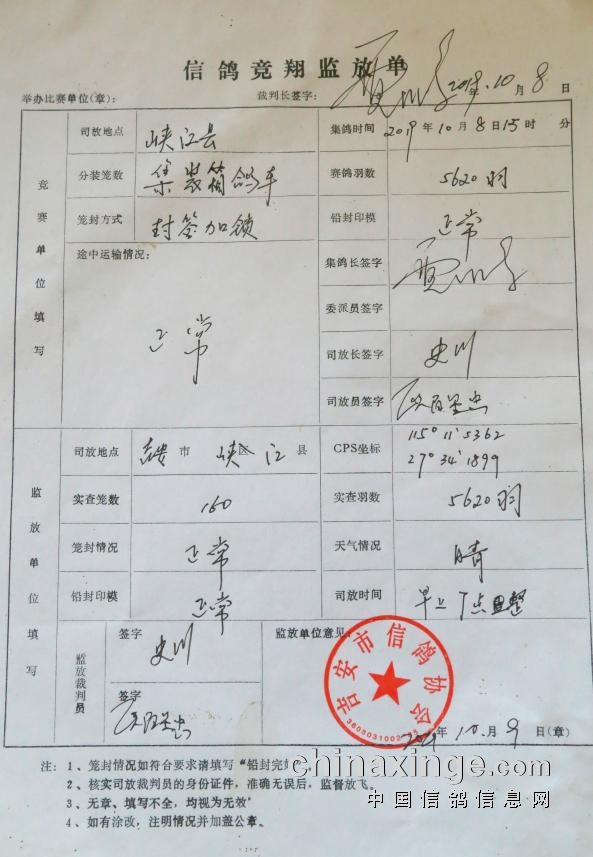 信鸽竞翔监放单
举办比赛单位(章): 裁判长签字: 2019.10月8日
竞赛单位填写
司放地点 峡江县 集鸽时间 2019年10月8日15时 分
分装笼数 集装箱鸽车 赛鸽羽数 5620羽
笼封方式 封签加锁 铅封印模 正常
途中运输情况: 正常 集鸽长签字
委派员签字
司放长签字 史川
司放员签字
监放单位填写
司放地点 市 峡区江县 CPS坐标 115°11′5362
27°34′1899
实查笼数 160 实查羽数 5620羽
笼封情况 正常 天气情况 晴
铅封印模 正常 司放时间 早上7点整
监放裁判员 签字 史川 监放单位意见:
签字
吉安市信鸽协会
2019年10.月9日(章)
注: 1、笼封情况如符合要求请填写“铅封完好
2、核实司放裁判员的身份证件，准确无误后，监督放飞。
3、无章、填写不全，均视为无效”
4、如有涂改，注明情况并加盖公章。
chinaxinge.com
中国信鸽信息网